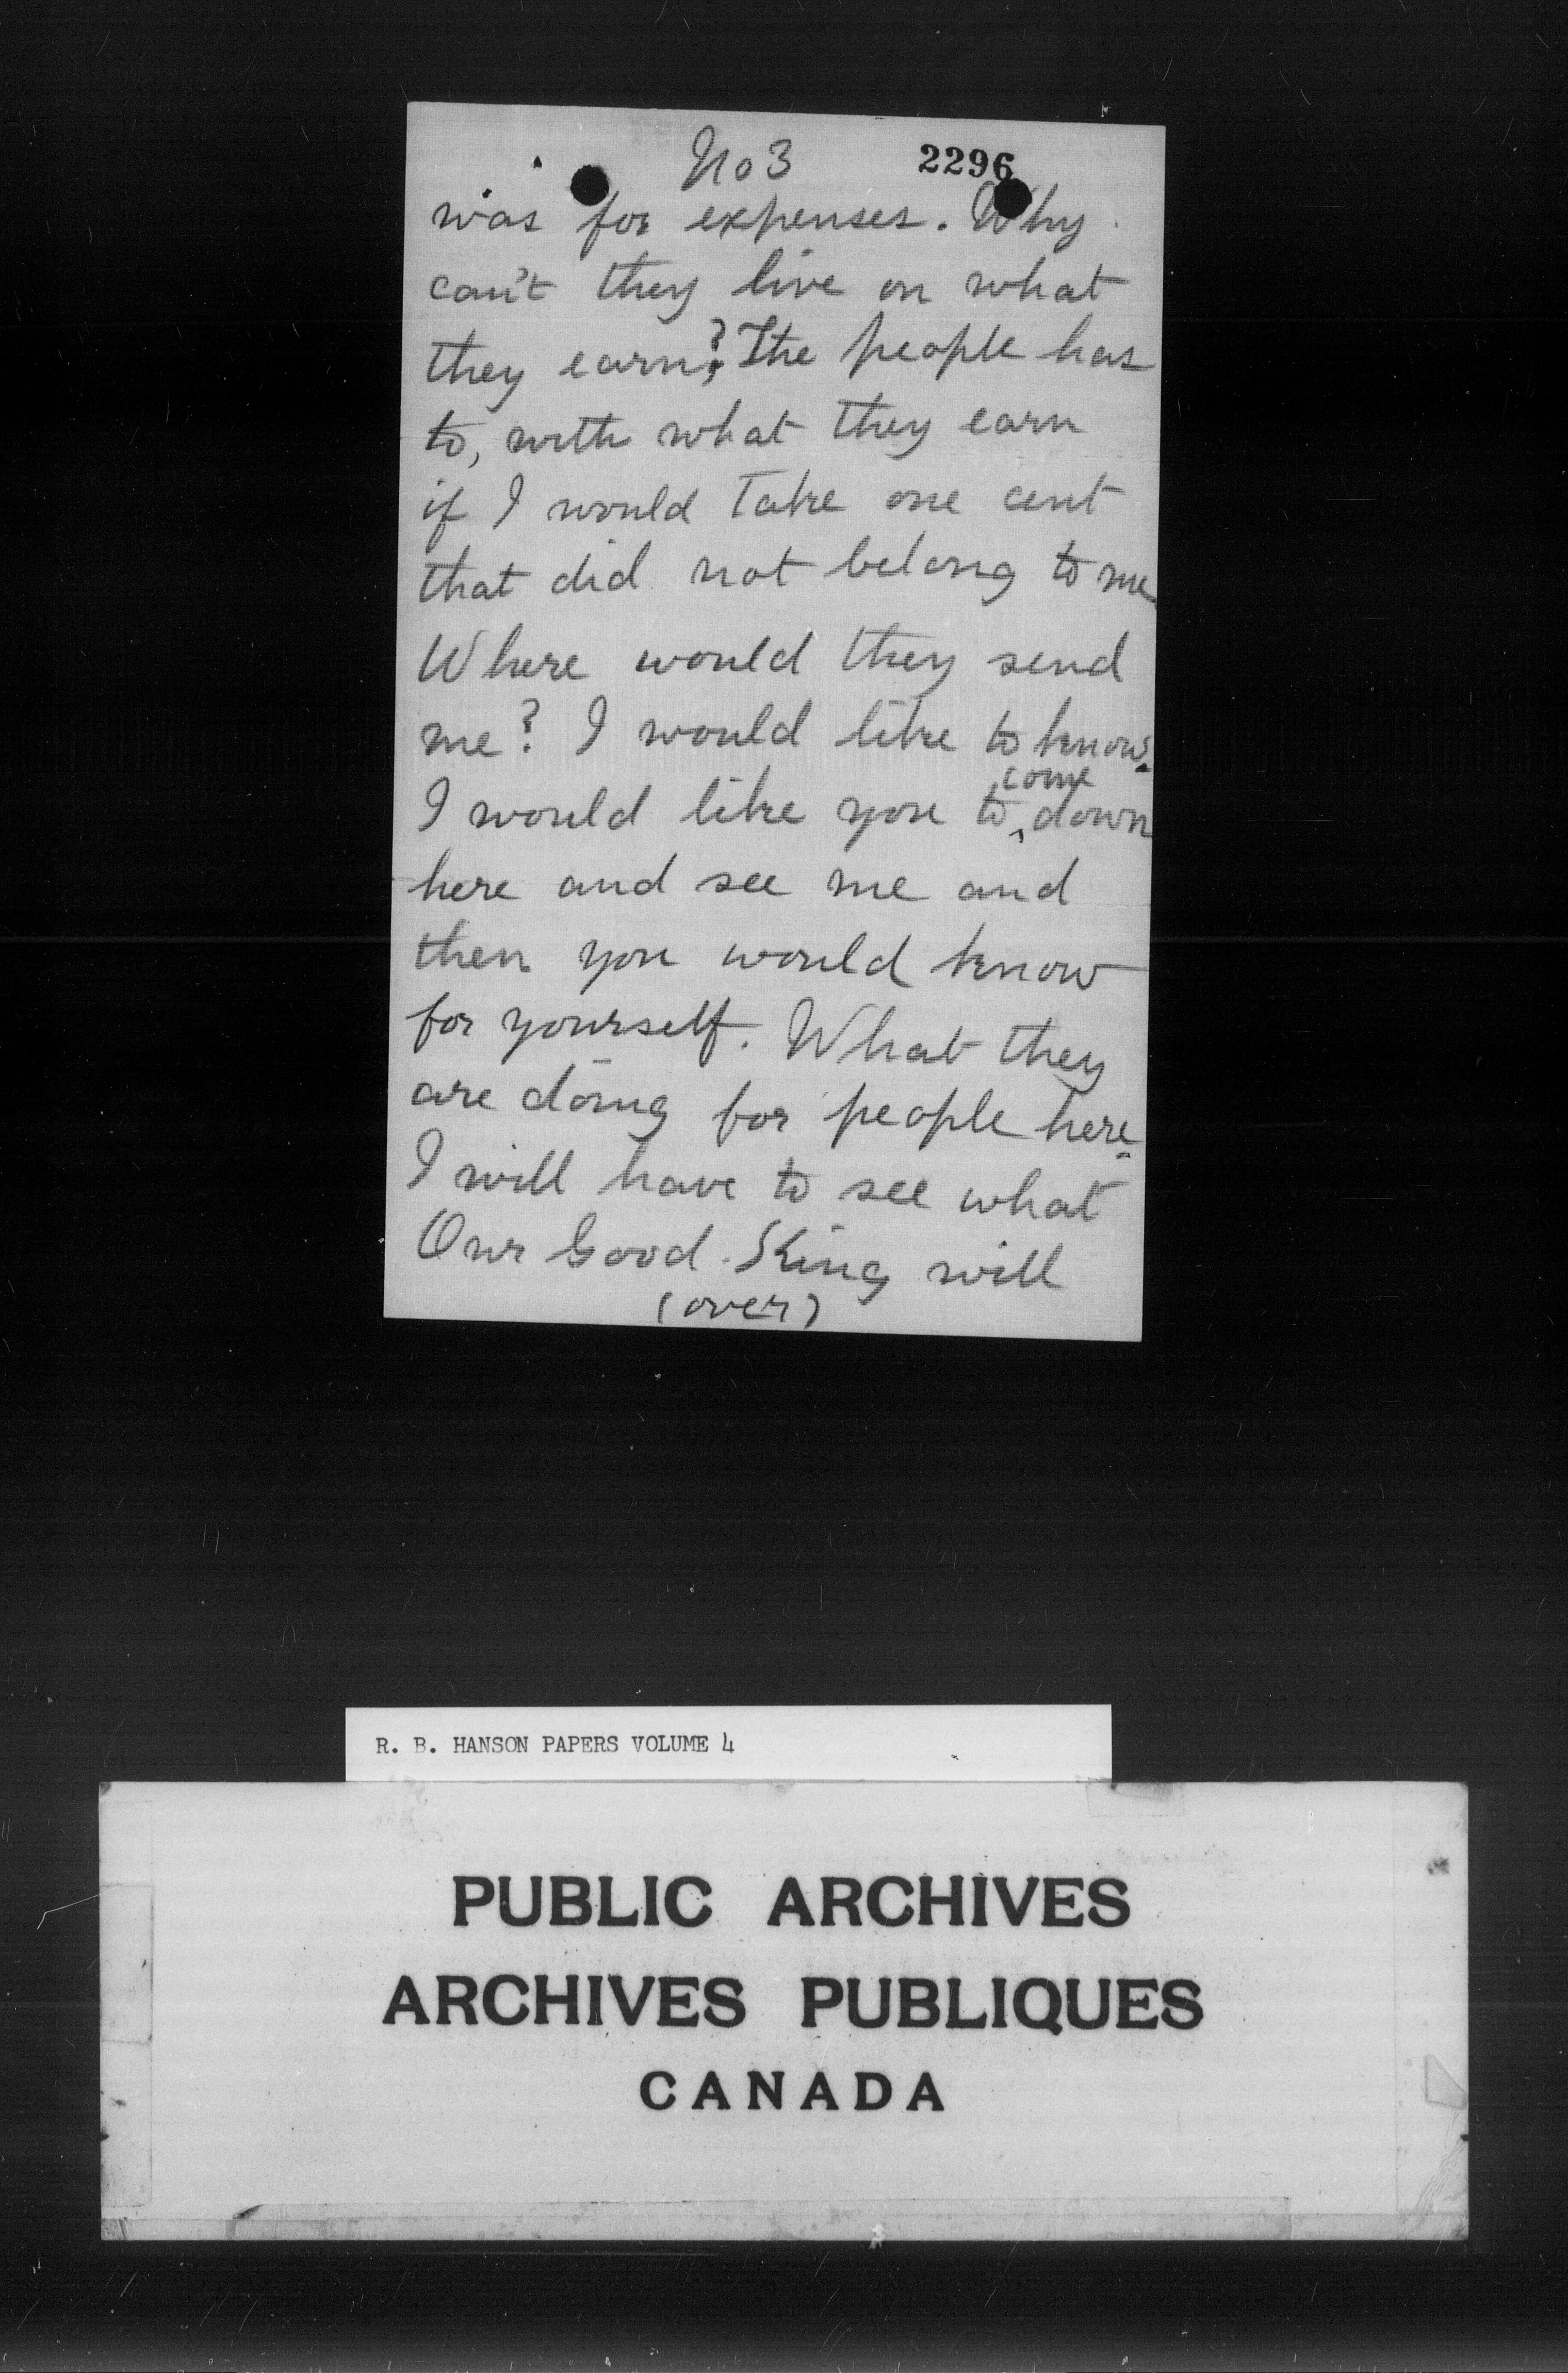 No 3 2296
was for expenses. Why
can't they live on what
they earn? The people has
to, with what they earn
if I would Take one cent
that did not belong to me
Where would they send
me? I would like to know.
I would like you to come down
here and see me and
then you would know
for yourself. What they
are doing for people here.
I will have to see what
Our Good King will
(over)
R. B. HANSON PAPERS VOLUME 4
PUBLIC ARCHIVES
ARCHIVES PUBLIQUES
CANADA